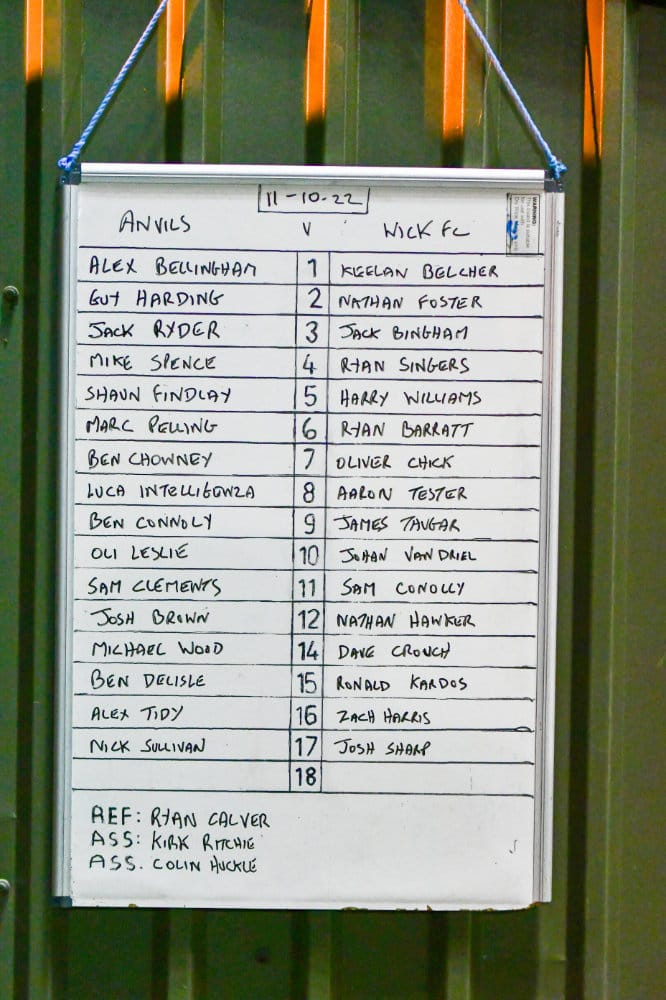 11-10-22
ANVILS V WICK FC
ALEX BELLINGHAM 1 KEELAN BELCHER
GUY HARDING 2 NATHAN FOSTER
JACK RYDER 3 JACK BINGHAM
MIKE SPENCE 4 RYAN SINGERS
SHAUN FINDLAY 5 HARRY WILLIAMS
MARC PELLING 6 RYAN BARRATT
BEN CHOWNEY 7 OLIVER CHICK
LUCA INTELLIGENZA 8 AARON TESTER
BEN CONNOLY 9 JAMES THUGAR
OLI LESLIE 10 JOHAN VAN DRIEL
SAM CLEMENTS 11 SAM CONOLLY
JOSH BROWN 12 NATHAN HAWKER
MICHAEL WOOD 14 DAVE CROUCH
BEN DELISLE 15 RONALD KARDOS
ALEX TIDY 16 ZACH HARRIS
NICK SULLIVAN 17 JOSH SHARP
18
REF: RYAN CALVER
ASS: KIRK RITCHIE
ASS. COLIN HUCKLE
WARNING: